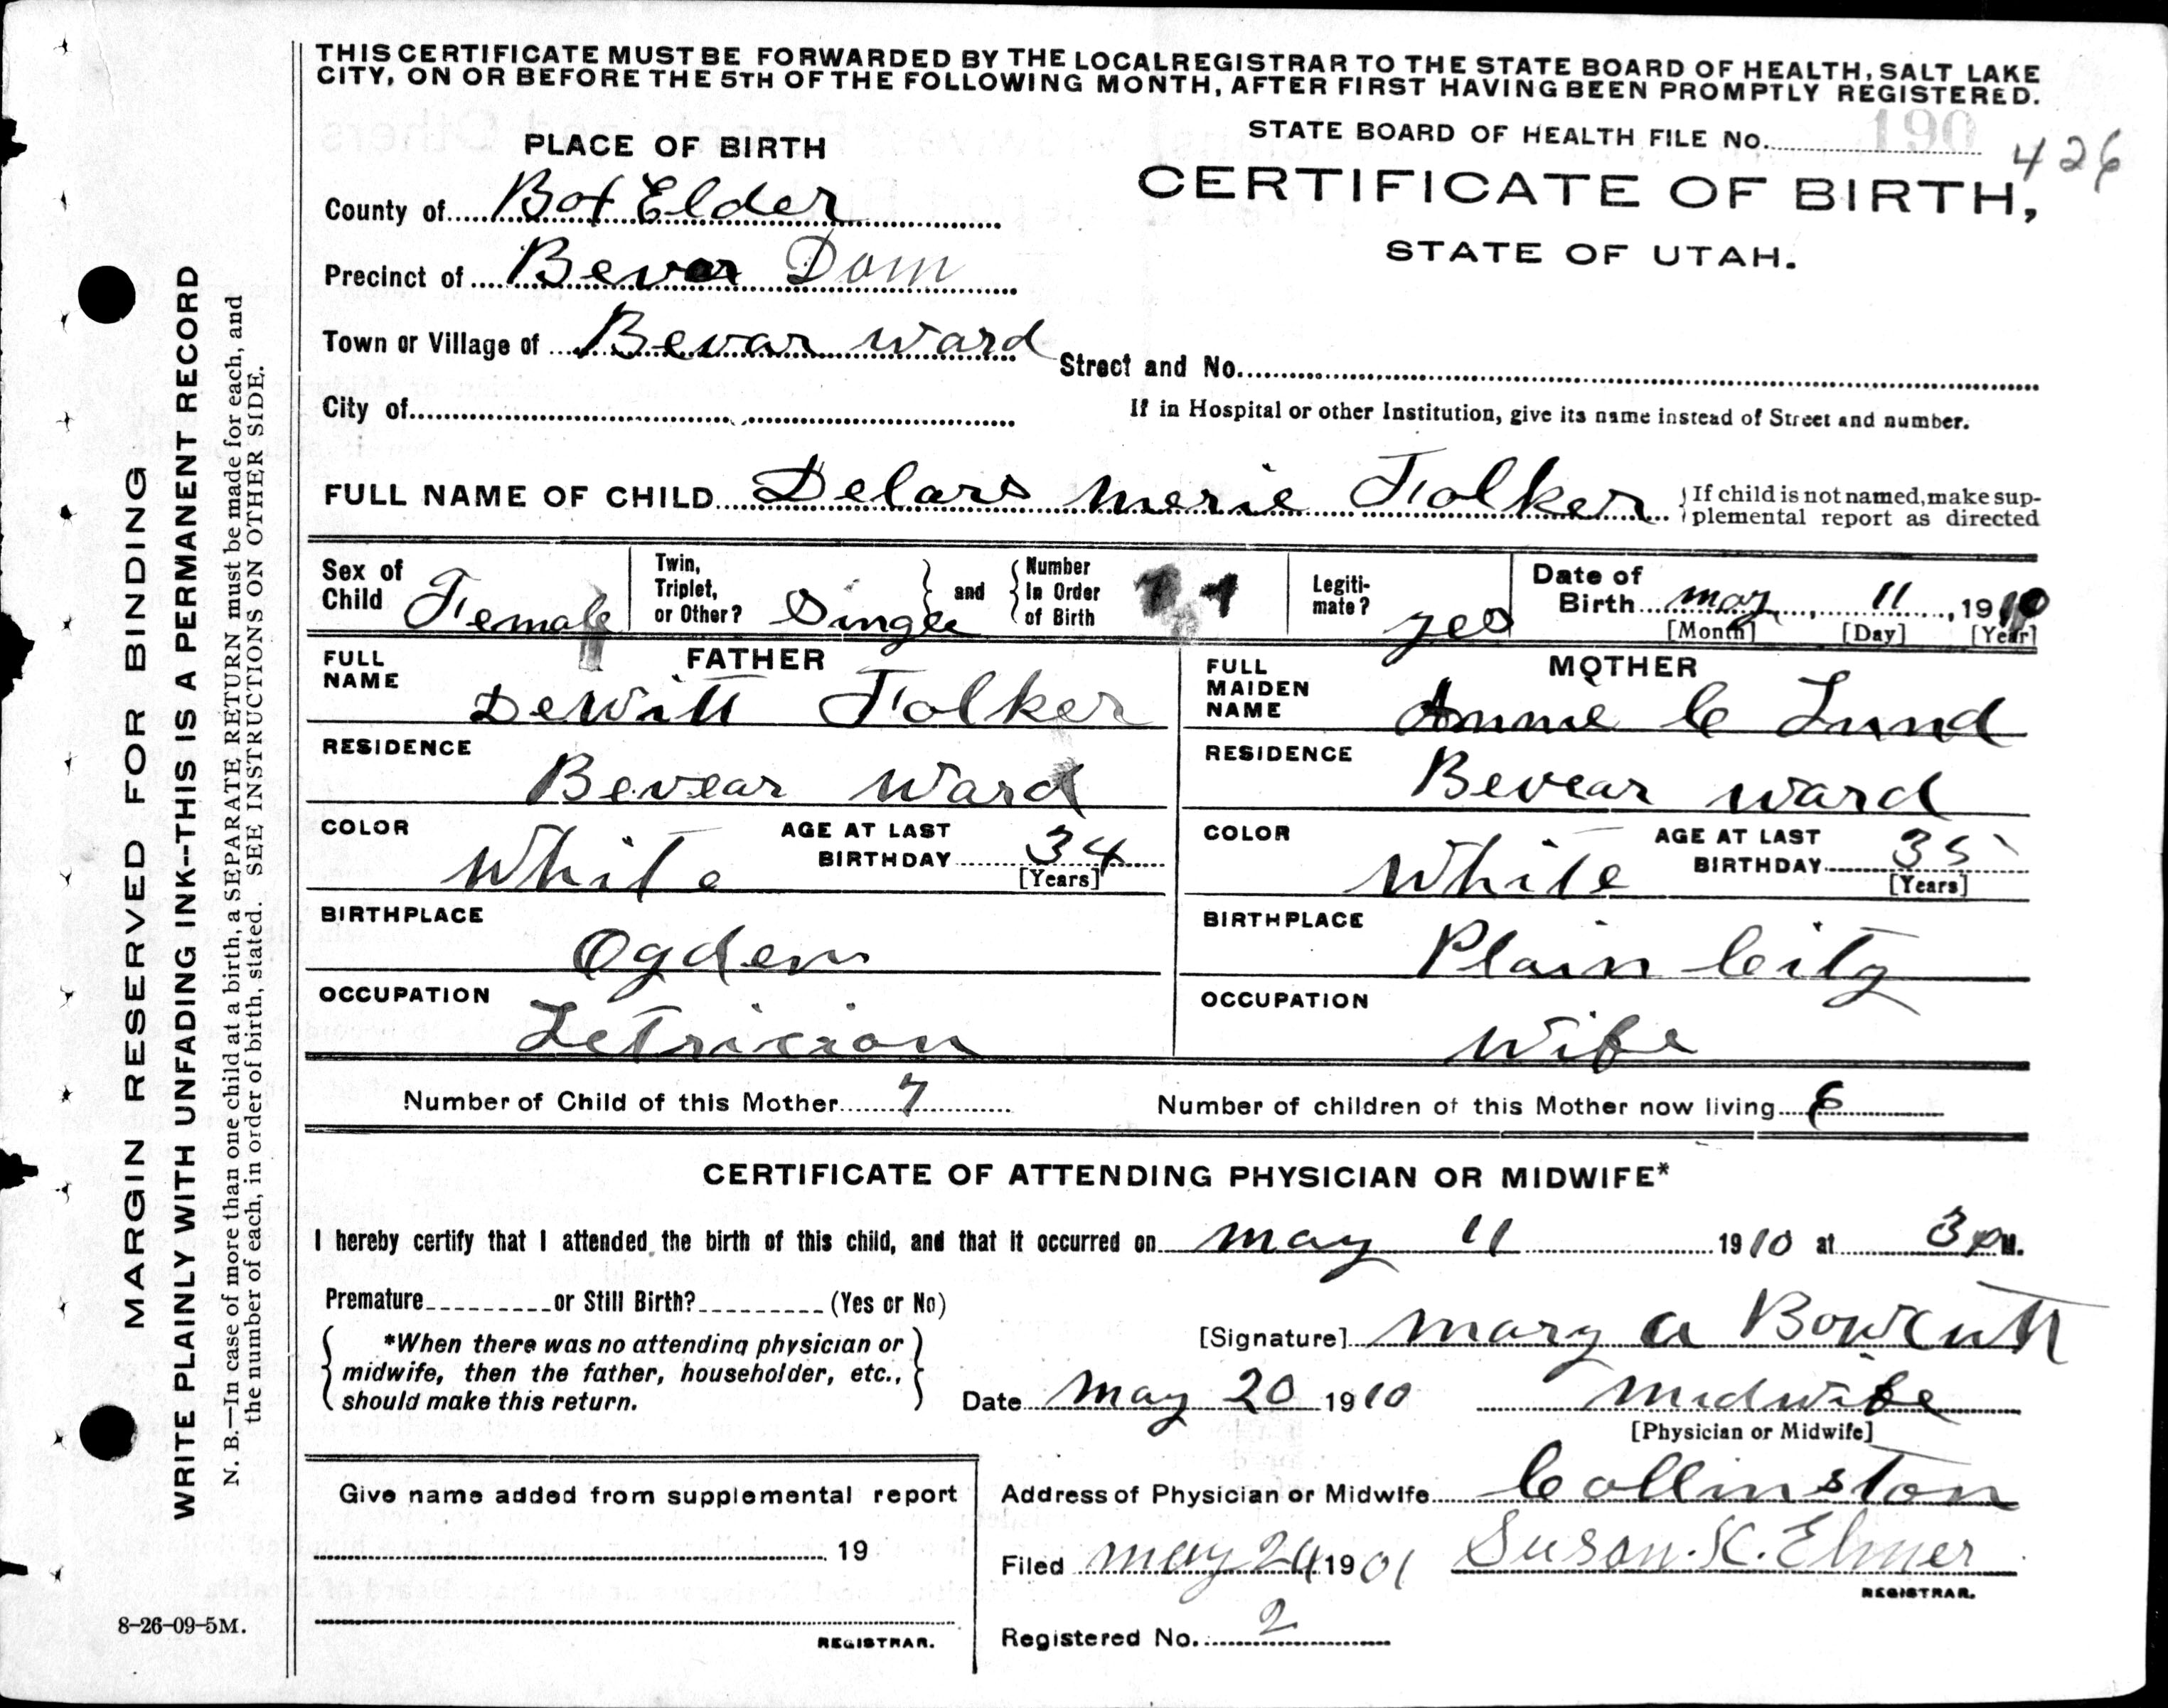 THIS CERTIFICATE MUST BE FORWARDED BY THE LOCAL REGISTRAR TO THE STATE BOARD OF HEALTH, SALT LAKE
CITY, ON OR BEFORE THE 5TH OF THE FOLLOWING MONTH, AFTER FIRST HAVING BEEN PROMPTLY REGISTERED.
PLACE OF BIRTH
STATE BOARD OF HEALTH FILE No. 190 426
County of Box Elder
CERTIFICATE OF BIRTH,
STATE OF UTAH.
Precinct of Bevar Dam
Town or Village of Bevar Ward
Street and No.
City of
If in Hospital or other Institution, give its name instead of Street and number.
FULL NAME OF CHILD Delars Merie Folker If child is not named, make sup-
plemental report as directed
Sex of Child Female
Twin, Triplet, or Other? Single and Number In Order of Birth
Legiti-mate? yes
Date of Birth may 11, 1910
[Month] [Day] [Year]
FATHER
FULL NAME DeWitt Folker
RESIDENCE Bevear Ward
COLOR White AGE AT LAST BIRTHDAY 34 [Years]
BIRTHPLACE Ogden
OCCUPATION Letrician
MOTHER
FULL MAIDEN NAME Annie C Lund
RESIDENCE Bevear ward
COLOR White AGE AT LAST BIRTHDAY 35 [Years]
BIRTHPLACE Plain City
OCCUPATION Wife
Number of Child of this Mother 7 Number of children of this Mother now living 6
CERTIFICATE OF ATTENDING PHYSICIAN OR MIDWIFE*
I hereby certify that I attended the birth of this child, and that it occurred on may 11 1910 at 3 P M.
Premature or Still Birth? (Yes or No)
*When there was no attending physician or
midwife, then the father, householder, etc.,
should make this return.
[Signature] Mary A Bowcutt
Date May 20 1910 Midwife
[Physician or Midwife]
Give name added from supplemental report
19
REGISTRAR.
Address of Physician or Midwife Collinston
Filed May 24 1901 Susan. K. Elmer
REGISTRAR.
Registered No. 2
8-26-09-5M.
MARGIN RESERVED FOR BINDING
WRITE PLAINLY WITH UNFADING INK--THIS IS A PERMANENT RECORD
N. B.—In case of more than one child at a birth, a SEPARATE RETURN must be made for each, and
the number of each, in order of birth, stated. SEE INSTRUCTIONS ON OTHER SIDE.